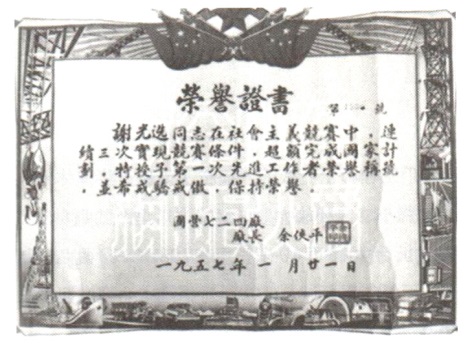 榮譽證書
第 號
謝光選同志在社會主義競賽中，連
續三次實現競賽條件，超額完成國家計
劃，特授予第一次先進工作者榮譽稱號
，並希戒驕戒傲，保持榮譽。
國營七二四廠
廠長 余俠平
一九五七年一月廿一日